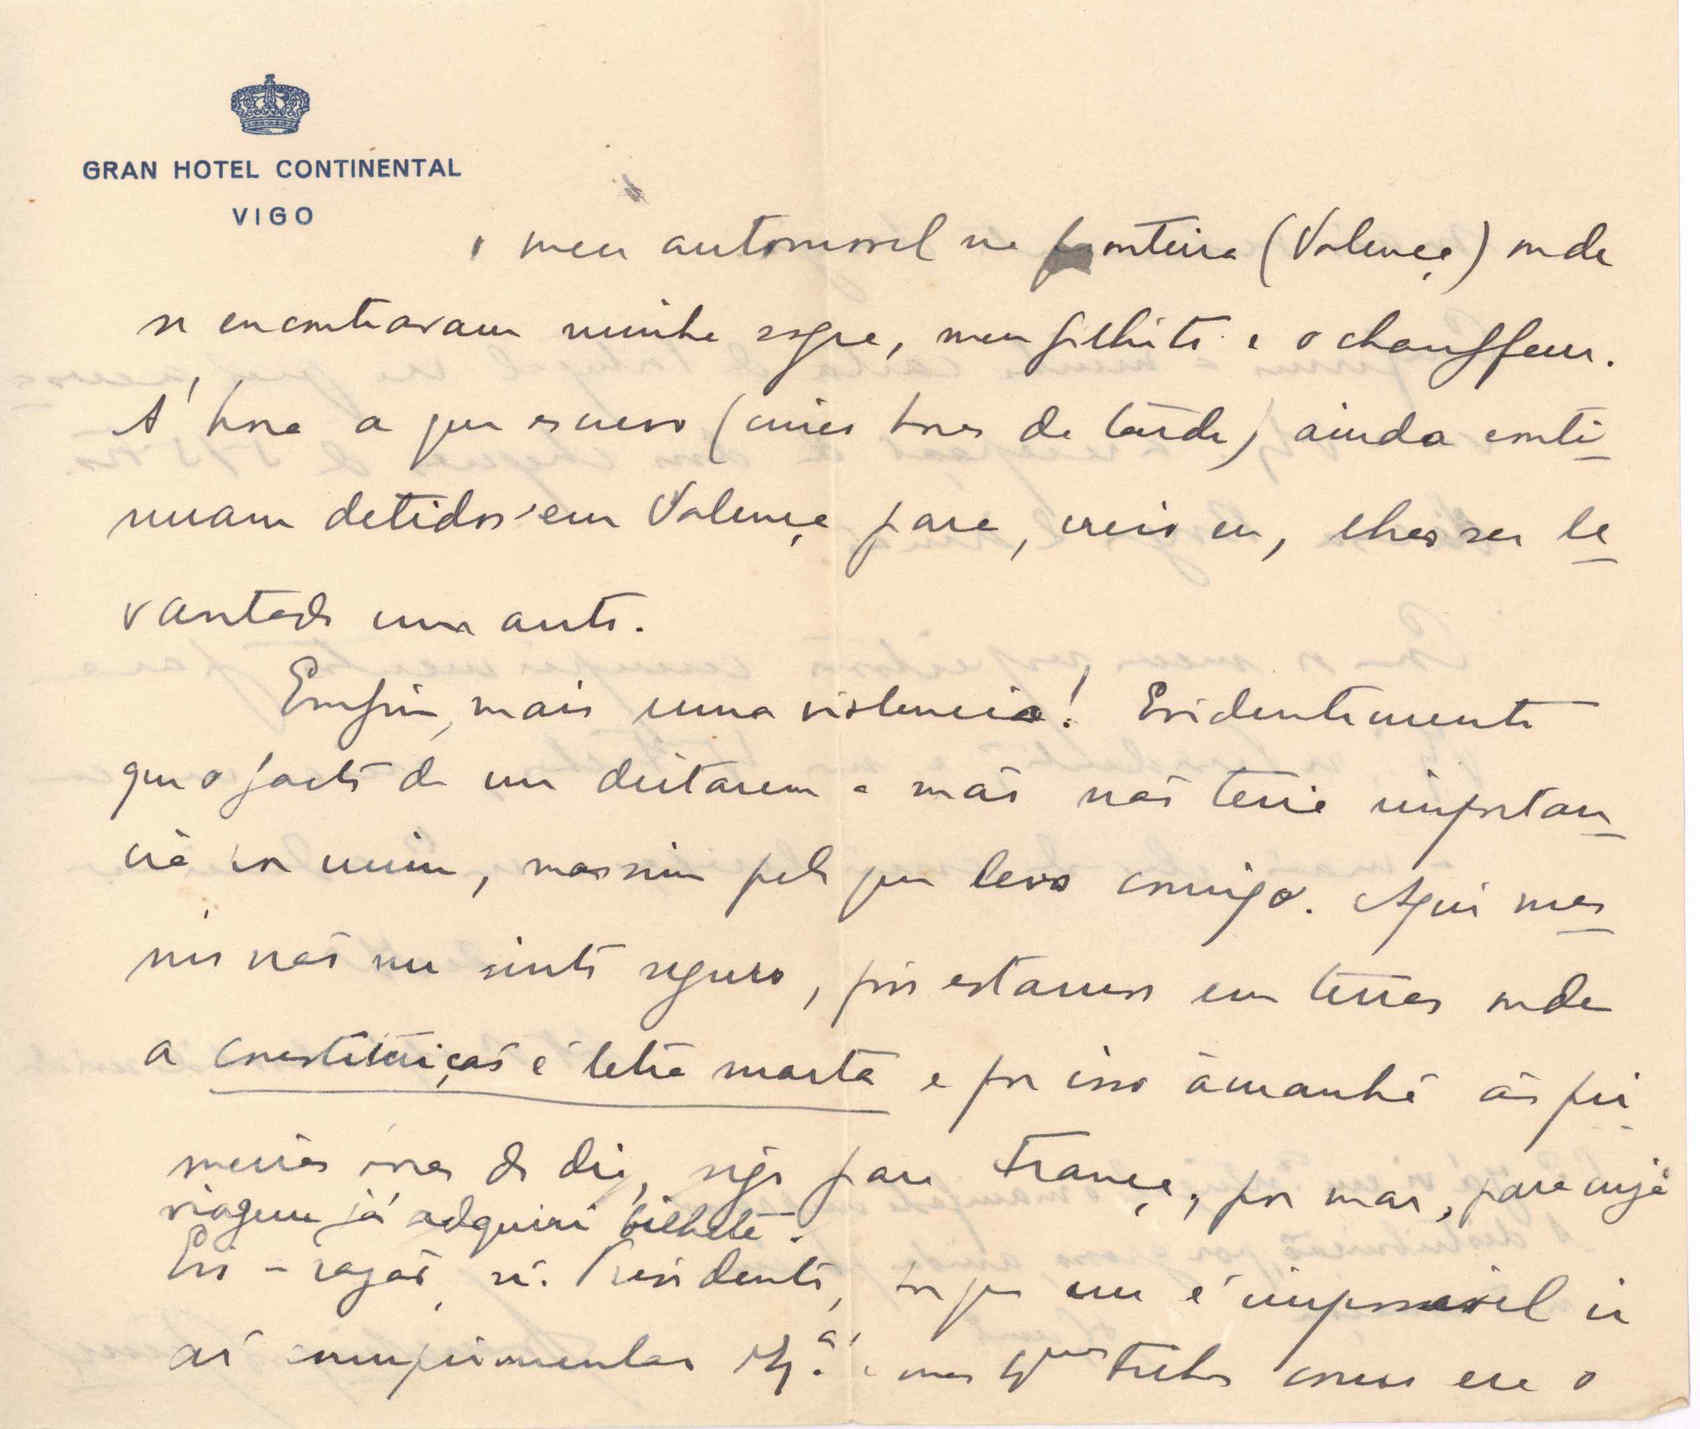 GRAN HOTEL CONTINENTAL
VIGO
o meu automovel na fronteira (Valença) onde
se encontravam minha sogra, meu filhito e o chauffeur.
A' hora a que escrevo (cinco horas da tarde) ainda conti-
nuam detidos em Valença para, creio eu, lhes ser le-
vantado um auto.
Emfim, mais uma violencia! Evidentemente
que o facto de me deitarem a mão não teria importan-
cia por mim, mas sim pelo que levo comigo. Aqui mes-
mo não me sinto seguro, pois estamos em terras onde
a constituição é letra morta e por isso àmanhã ás pri-
meiras oras do dia, sigo para França, por mar, para cuja
viagem já adquiri bilhete.
Eis a razão, sr. Presidente, porque me é impossivel ir
aí cumprimentar V. Ex.ª e mas tribs como era o